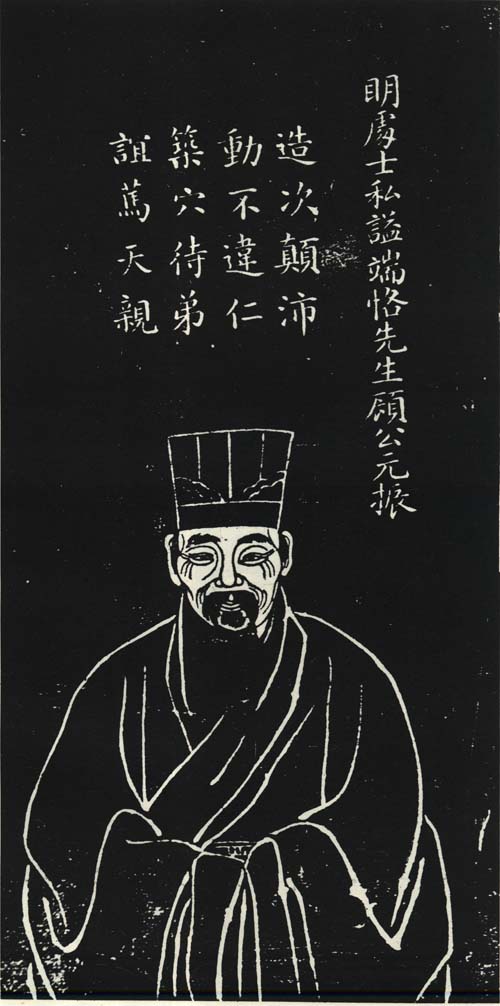 明處士私謚端恪先生顧公元振
造次顛沛
動不違仁
築穴待弟
誼篤天親